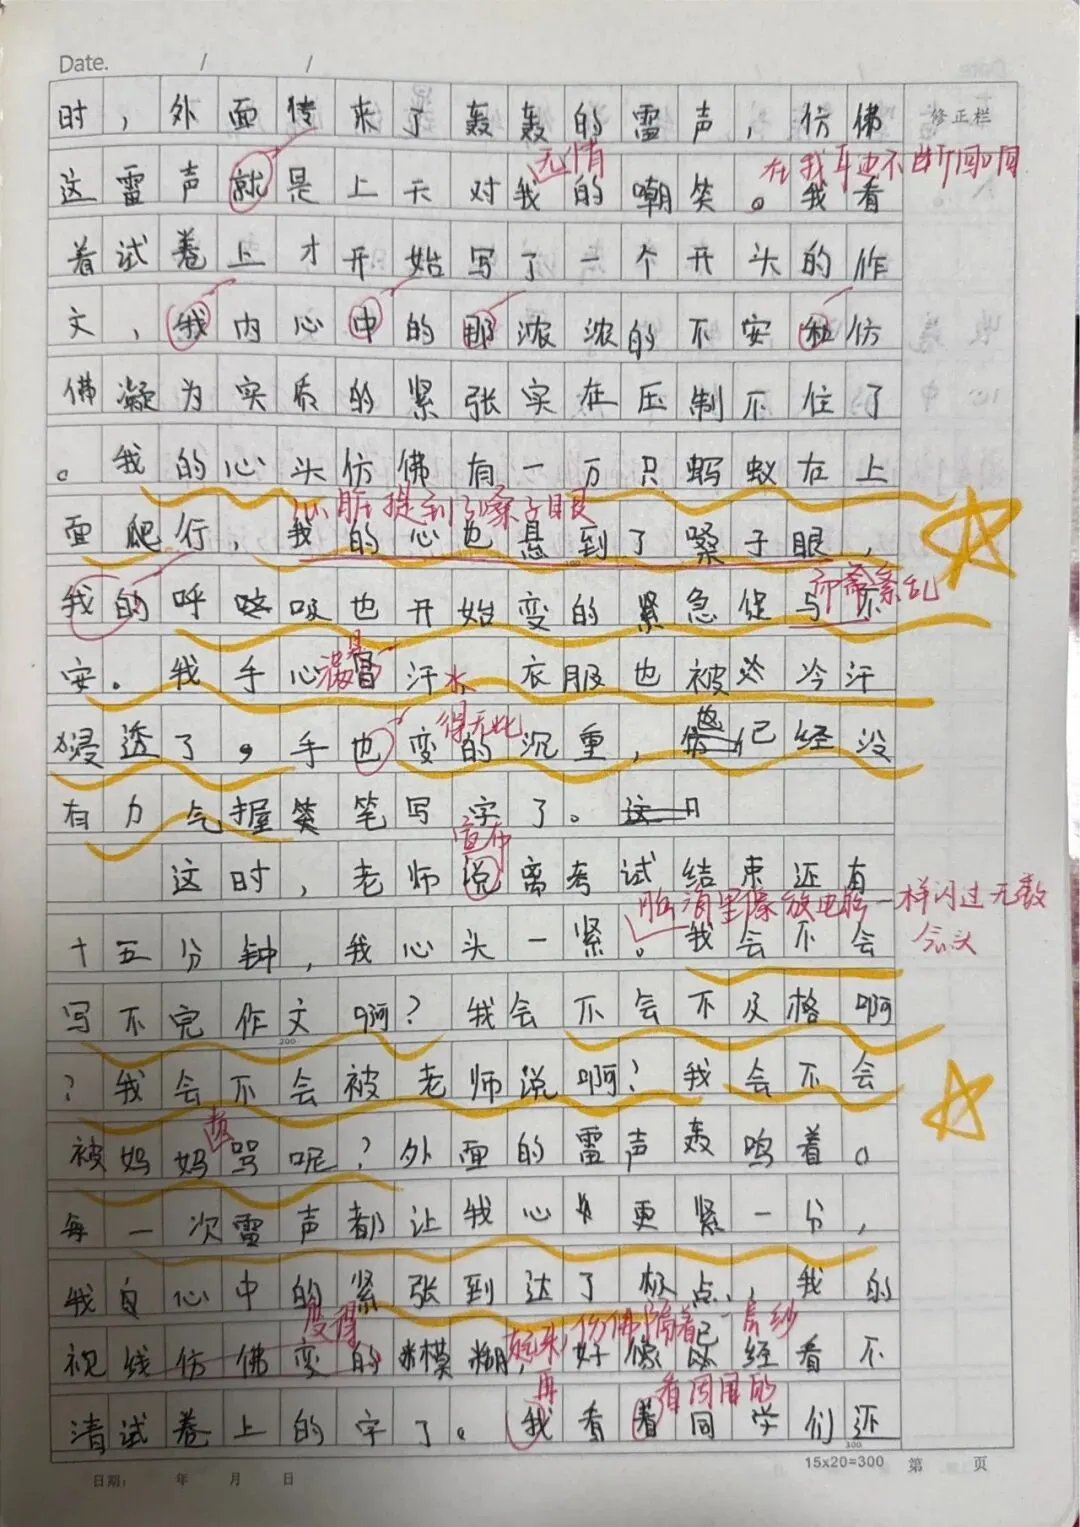 Date. / /
时，外面传来了轰轰的雷声，仿佛
修正栏
无情
在我耳边不断回响
这雷声就是上天对我的嘲笑。我看
着试卷上才开始写了一个开头的作
文，我内心中的那浓浓的不安和仿
佛凝为实质的紧张实在压制不住了
。我的心头仿佛有一万只蚂蚁在上
心脏提到了嗓子眼
面爬行，我的心也悬到了嗓子眼，
我的呼吸也开始变的紧急促与不
紊乱
安。我手心冒汗，衣服也被冷汗
满是
水
浸透了，手也变的沉重，也已经没
得无比
有力气握笔写字了。
宣布
这时，老师说离考试结束还有
脑海里像放电影一样闪过无数念头
十五分钟，我心头一紧。我会不会
写不完作文啊？我会不会不及格啊
200
？我会不会被老师说啊？我会不会
被妈妈骂呢？外面的雷声轰鸣着。
每一次雷声都让我心头更紧一分，
我心中的紧张到达了极点，我的
变得
起来，仿佛隔着一层纱
视线仿佛变的模糊，好像已经看不
再
看周围的
清试卷上的字了。我看着同学们还
300
15x20=300 第 页
日期： 年 月 日